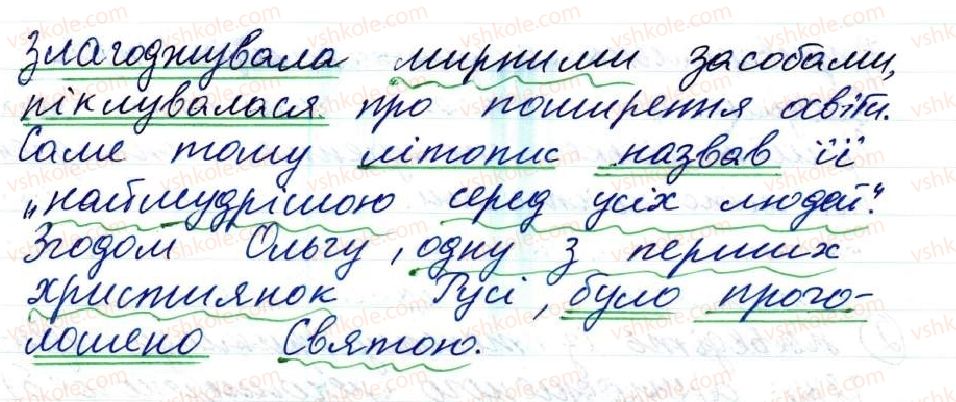 Злагоджувала мирними засобами,
піклувалася про поширення освіти.
Саме тому літопис назвав її
„наймудрішою серед усіх людей".
Згодом Ольгу, одну з перших
християнок Русі, було прого-
лошено Святою.